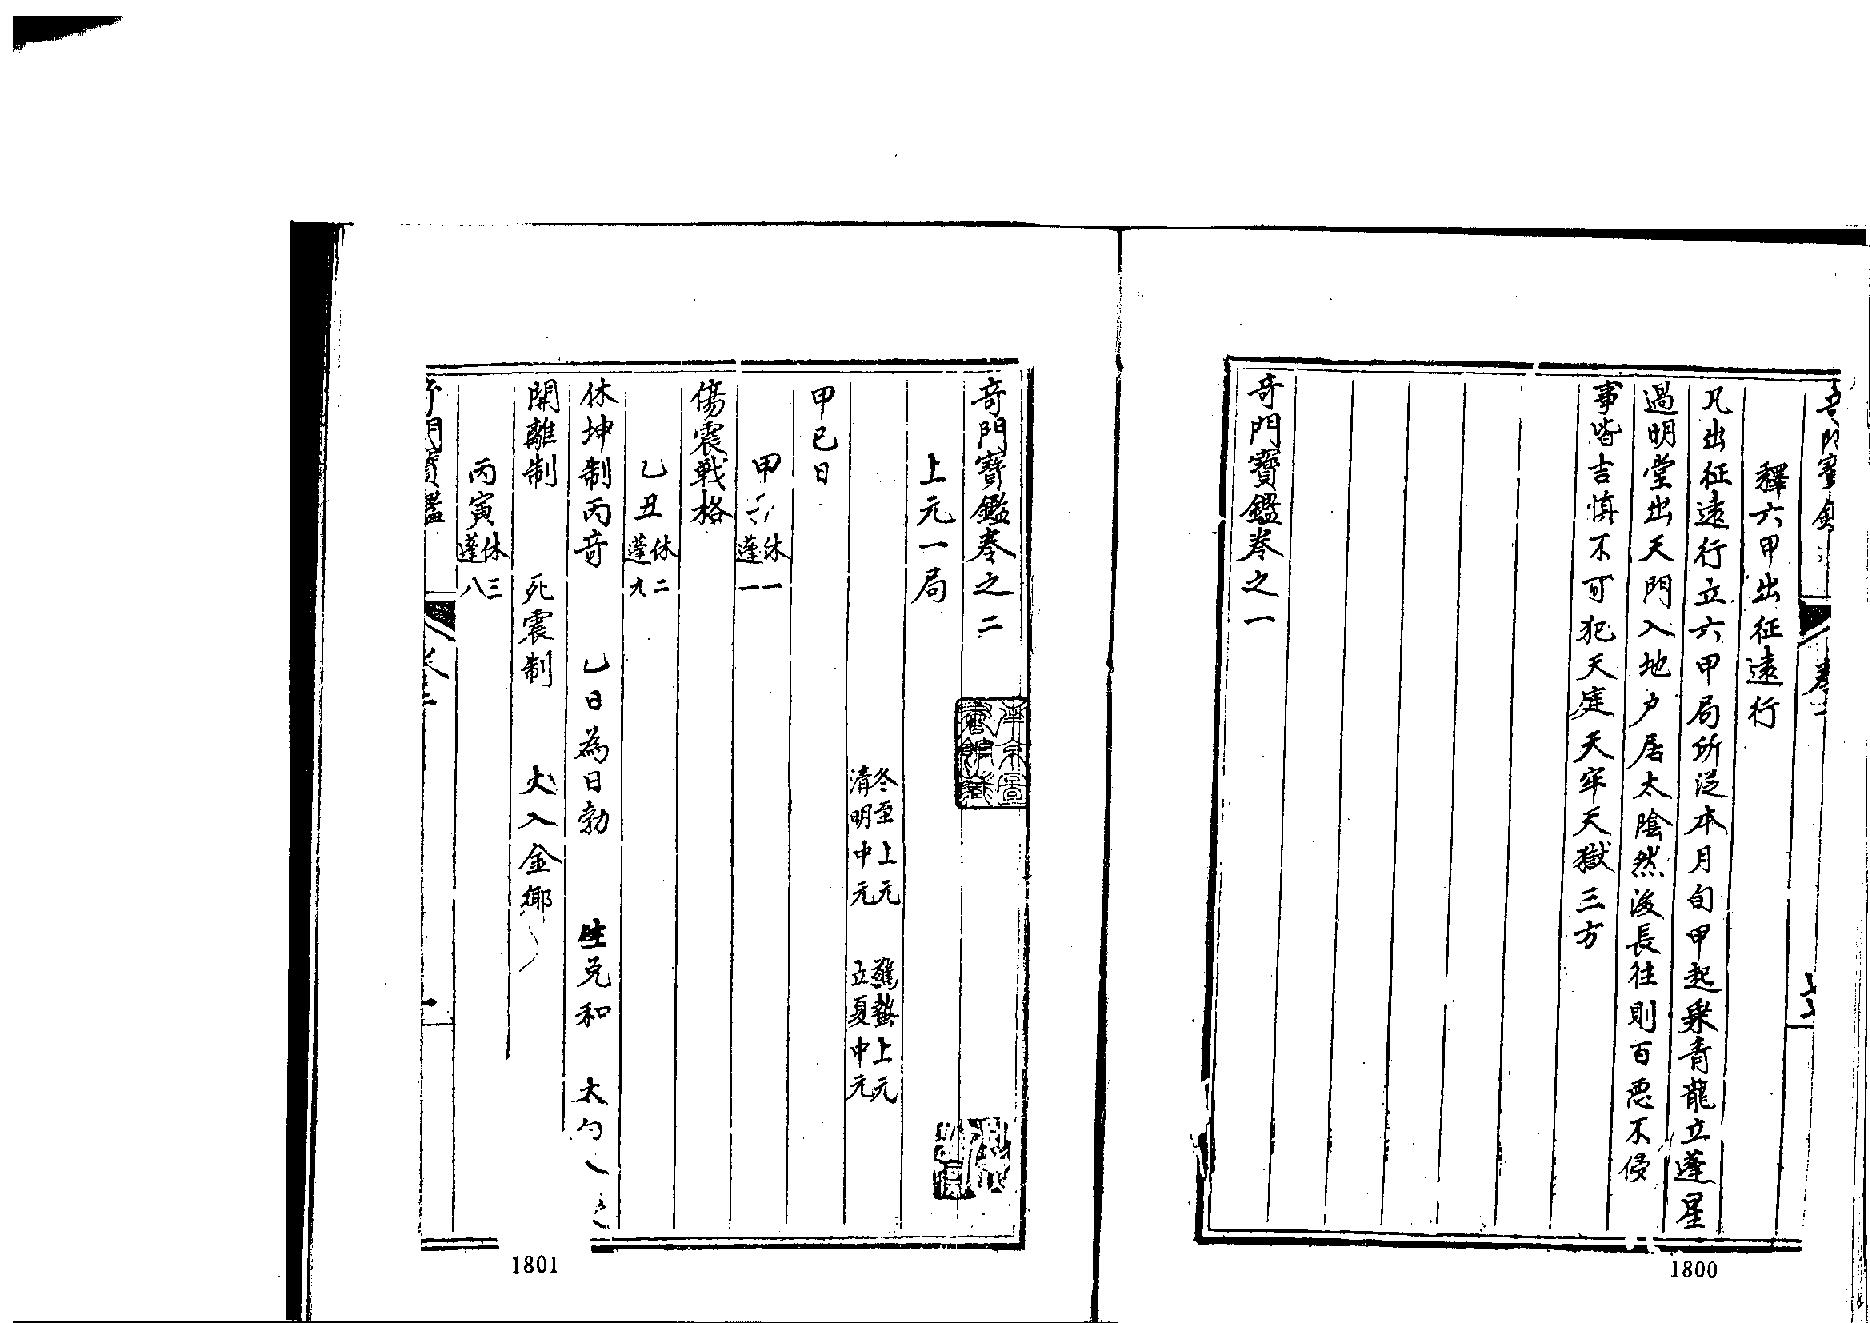 釋六甲出征遠行
凡出征遠行立六甲局所從本月旬甲起乘青龍立蓬星
過明堂出天門入地户居太陰然後長往則百惡不侵
事皆吉慎不可犯天庭天牢天獄三方
奇門寶鑑卷之一
1800
奇門寶鑑卷之二
上元一局
冬至上元 驚蟄上元
清明中元 立夏中元
甲已日
甲子 休一
蓬一
傷震戰格
乙丑 休二
蓬九
休坤制丙奇 乙日為日勃 生兌和
開離制 死震制 火入金鄉
丙寅 休三
蓬八
奇門寶鑑
1801